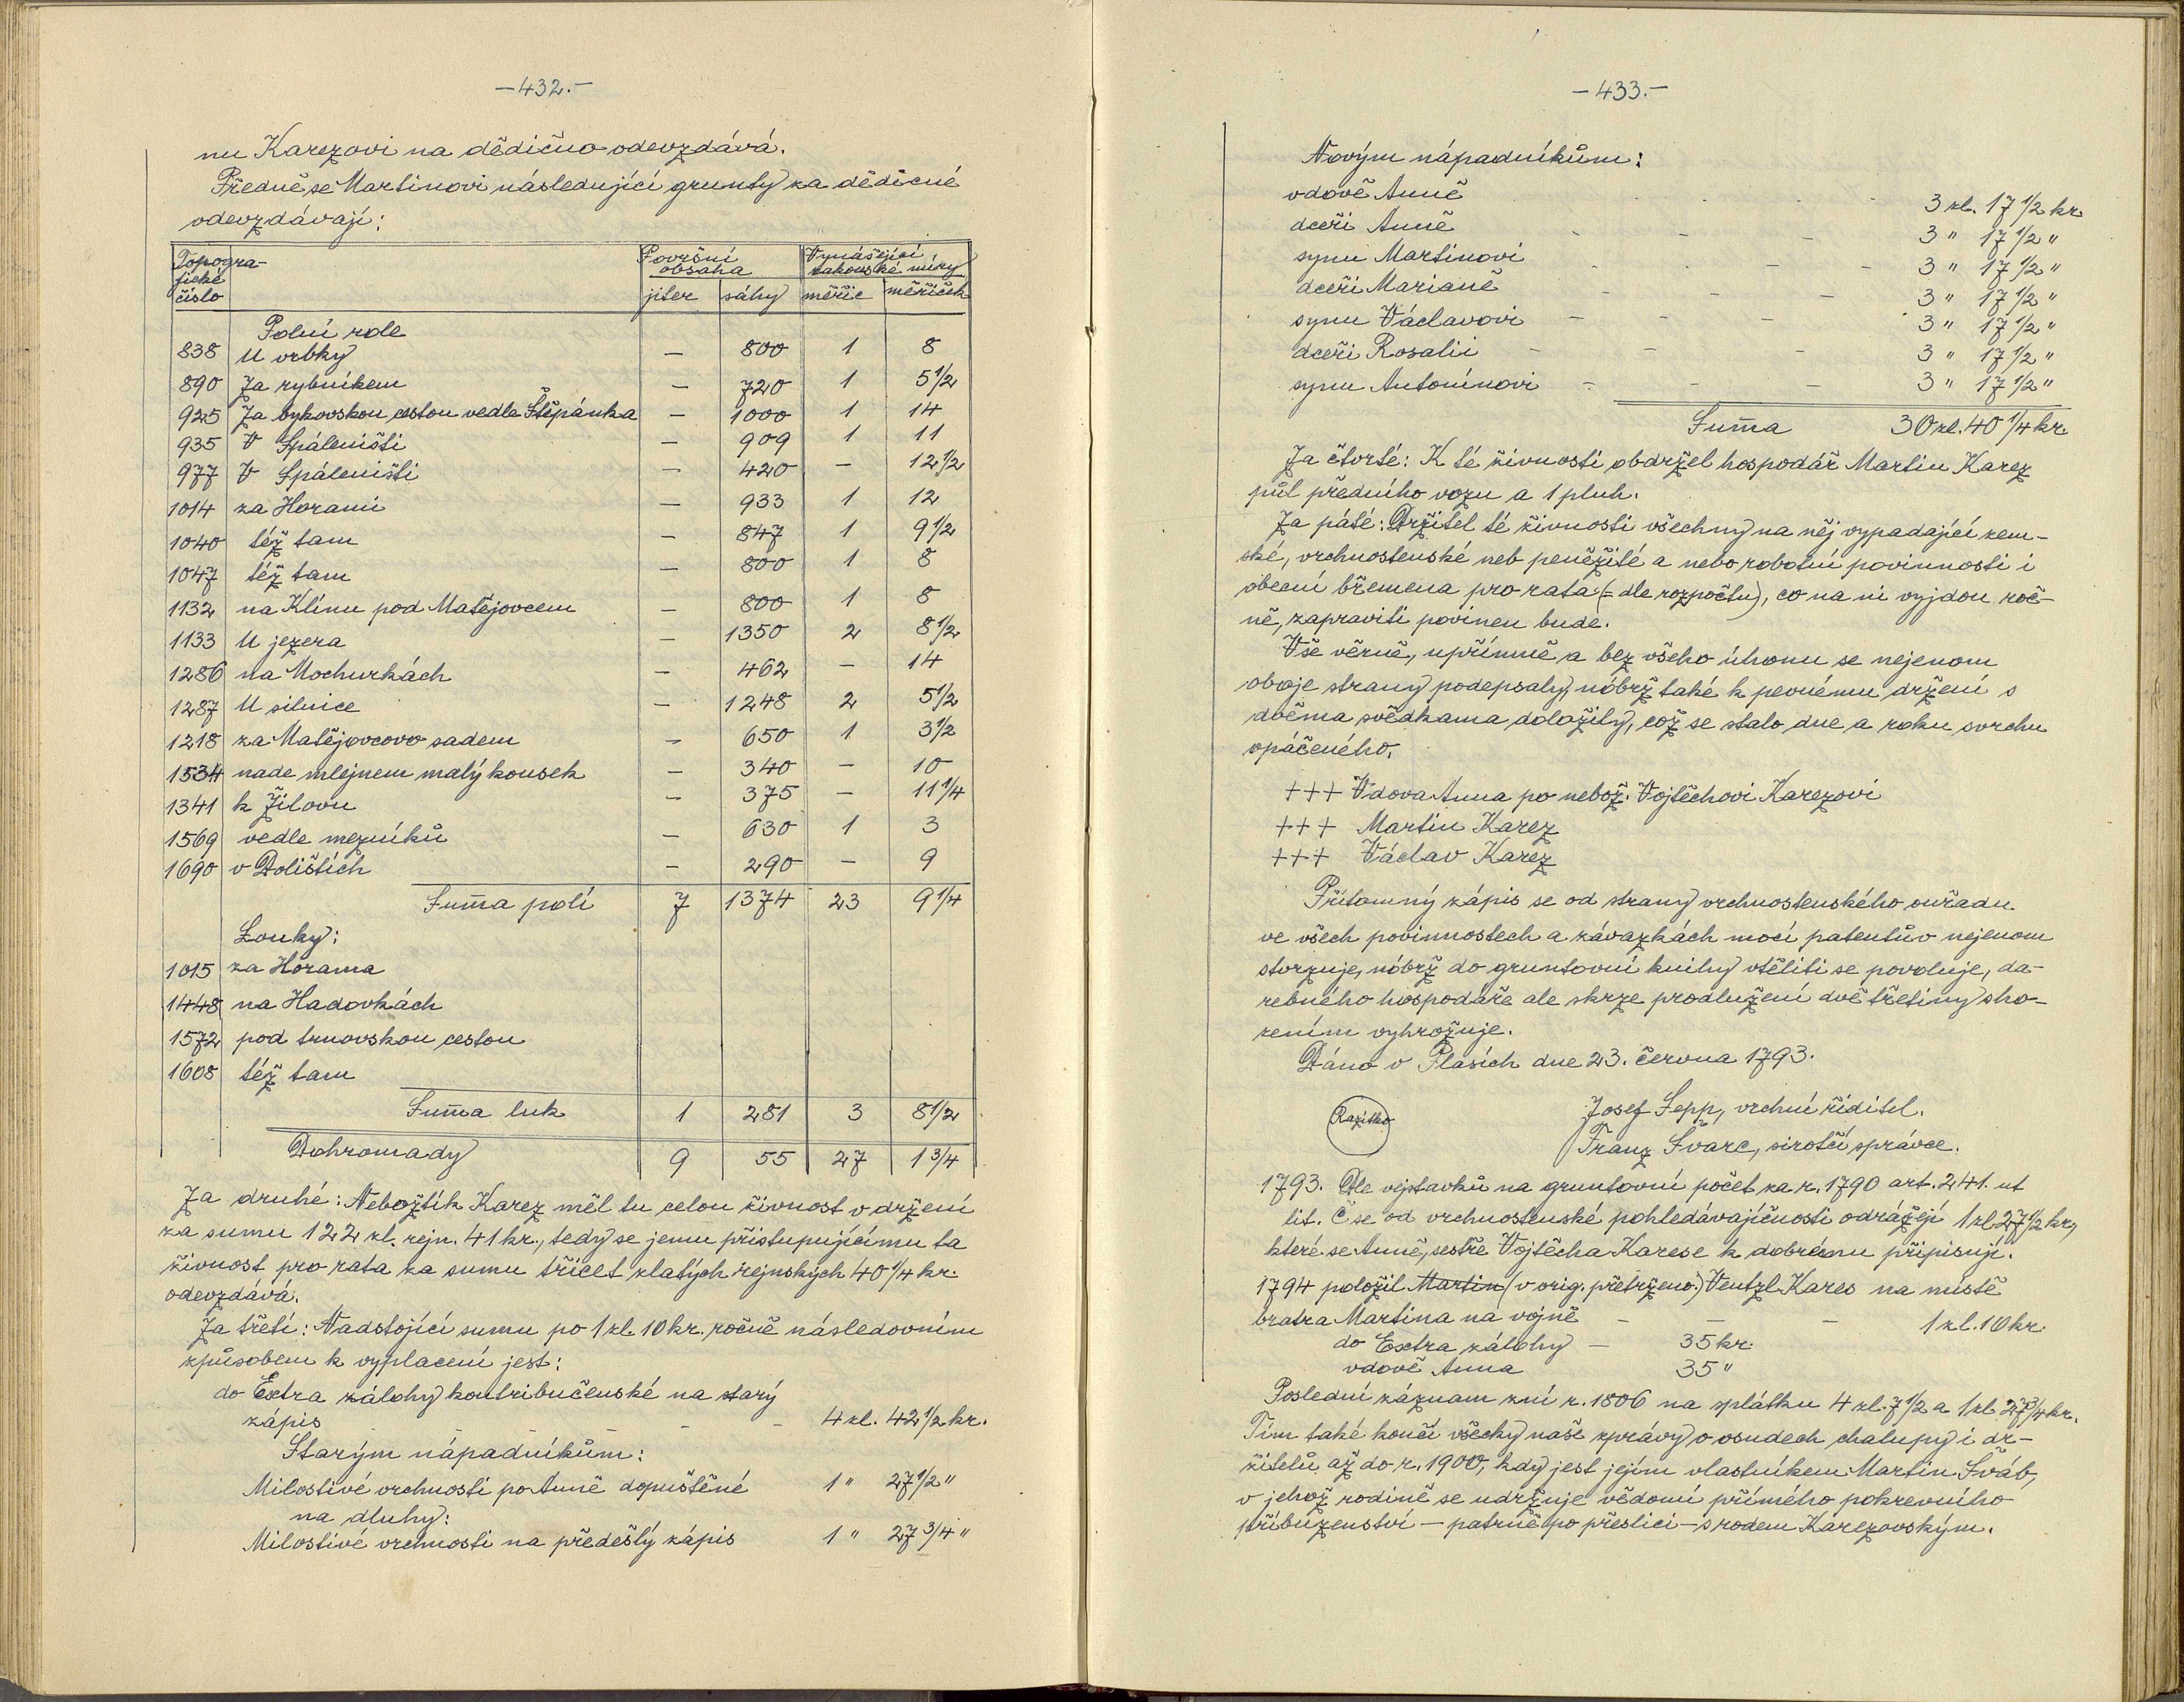 —432.—
nu Karezovi na dědično odevzdává.
Předně se Martinovi následující grunty za dědicné
odevzdávají:
Topogra-
fické
číslo
Površní
obsaha
Vynášející
rakouské míry
jiter sáhy měřic měřiček
Polní role
838 U vrbky — 800 1 8
890 Za rybníkem — 720 1 5 1/2
925 Za bykovskou cestou vedle Štěpánka — 1000 1 14
935 V Spáleništi — 909 1 11
977 V Spáleništi — 420 — 12 1/2
1014 za Horami — 933 1 12
1040 též tam — 847 1 9 1/2
1047 též tam — 800 1 8
1132 na Klínu pod Matějovcem — 800 1 8
1133 U jezera — 1350 2 8 1/2
1286 na Mochurkách — 462 — 14
1287 U silnice — 1248 2 5 1/2
1218 za Matějovcovo sadem — 650 1 3 1/2
1534 nade mlejnem malý kousek — 340 — 10
1341 k Žilovu — 375 — 11 1/4
1569 vedle mezníků — 630 1 3
1690 v Dolištích — 290 — 9
Sum̄a polí 7 1374 23 9 1/4
Louky:
1015 za Horama
1448 na Hadovkách
1572 pod trnovskou cestou
1608 též tam
Sum̄a luk 1 281 3 8 1/2
Dohromady 9 55 27 1 3/4
Za druhé: Nebožtík Karez měl tu celou živnost v držení
za sumu 122 zl. rejn. 41 kr., tedy se jemu přistupujícímu ta
živnost pro rata za sumu třicet zlatých rejnských 40 1/4 kr.
odevzdává.
Za třetí: Nadstojící sumu po 1 zl. 10 kr. ročně následovním
způsobem k vyplacení jest:
do Extra zálohy kontribučenské na starý
zápis - - - 4 zl. 42 1/2 kr.
Starým nápadníkům:
Milostivé vrchnosti po Anně dopuštěné 1 " 27 1/2 "
na dluhy:
Milostivé vrchnosti na předešlý zápis 1 " 27 3/4 "
—433.—
Novým nápadníkům:
vdově Anně - - - 3 zl. 17 1/2 kr.
dceři Anně - - - 3 " 17 1/2 "
synu Martinovi - - - 3 " 17 1/2 "
dceři Marianě - - - 3 " 17 1/2 "
synu Václavovi - - - 3 " 17 1/2 "
dceři Rosalii - - - 3 " 17 1/2 "
synu Antonínovi - - - 3 " 17 1/2 "
Sum̄a 30 zl. 40 1/4 kr.
Za čtvrté: K té živnosti obdržel hospodář Martin Karez
půl předního vozu a 1 pluh.
Za páté: Držitel té živnosti všechny na něj vypadající zem-
ské, vrchnostenské neb peněžité a nebo robotní povinnosti i
obecní břemena pro rata (= dle rozpočtu), co na ni vyjdou roč-
ně, zapraviti povinen bude.
Vše věrně, upřímně a bez všeho úhonu se nejenom
oboje strany podepsaly, nóbrž také k pevnému držení s
dvěma svědkama doložily, což se stalo dne a roku svrchu
opáčeného.
+++ Vdova Anna po nebož. Vojtěchovi Karezovi
+++ Martin Karez
+++ Václav Karez
Přítomný zápis se od strany vrchnostenského ouřadu
ve všech povinnostech a závazkách mocí patentův nejenom
stvrzuje, nóbrž do gruntovní knihy vtěliti se povoluje, da-
rebného hospodáře ale skrze prodlužení dvě třetiny sho-
zením vyhrožuje.
Dáno v Plasích dne 23. června 1793.
Razítko
Josef Sepp, vrchní řiditel.
Franz Švarc, sirotčí správce.
1793. Dle vejstavků na gruntovní počet za r. 1790 art. 241. ut
lit. Č se od vrchnostenské pohledávajíčnosti odrážejí 1 zl. 27 1/2 kr.,
které se Anně, sestře Vojtěcha Karese k dobrému připisují.
1794 položil Martin (v orig. přetrženo.) Ventzl Kares na místě
bratra Martina na vojně - - - 1 zl. 10 kr.
do Extra zálohy — 35 kr.
vdově Anna 35 "
Poslední záznam zní r. 1806 na splátku 4 zl. 7 1/2 a 1 zl. 27 3/4 kr.
Tím také končí všecky naše zprávy o osudech chalupy i dr-
žitelů až do r. 1900, kdy jest jejím vlastníkem Martin Šváb,
v jehož rodině se udržuje vědomí přímého pokrevního
příbuzenství — patrně po přeslici — s rodem Karezovským.